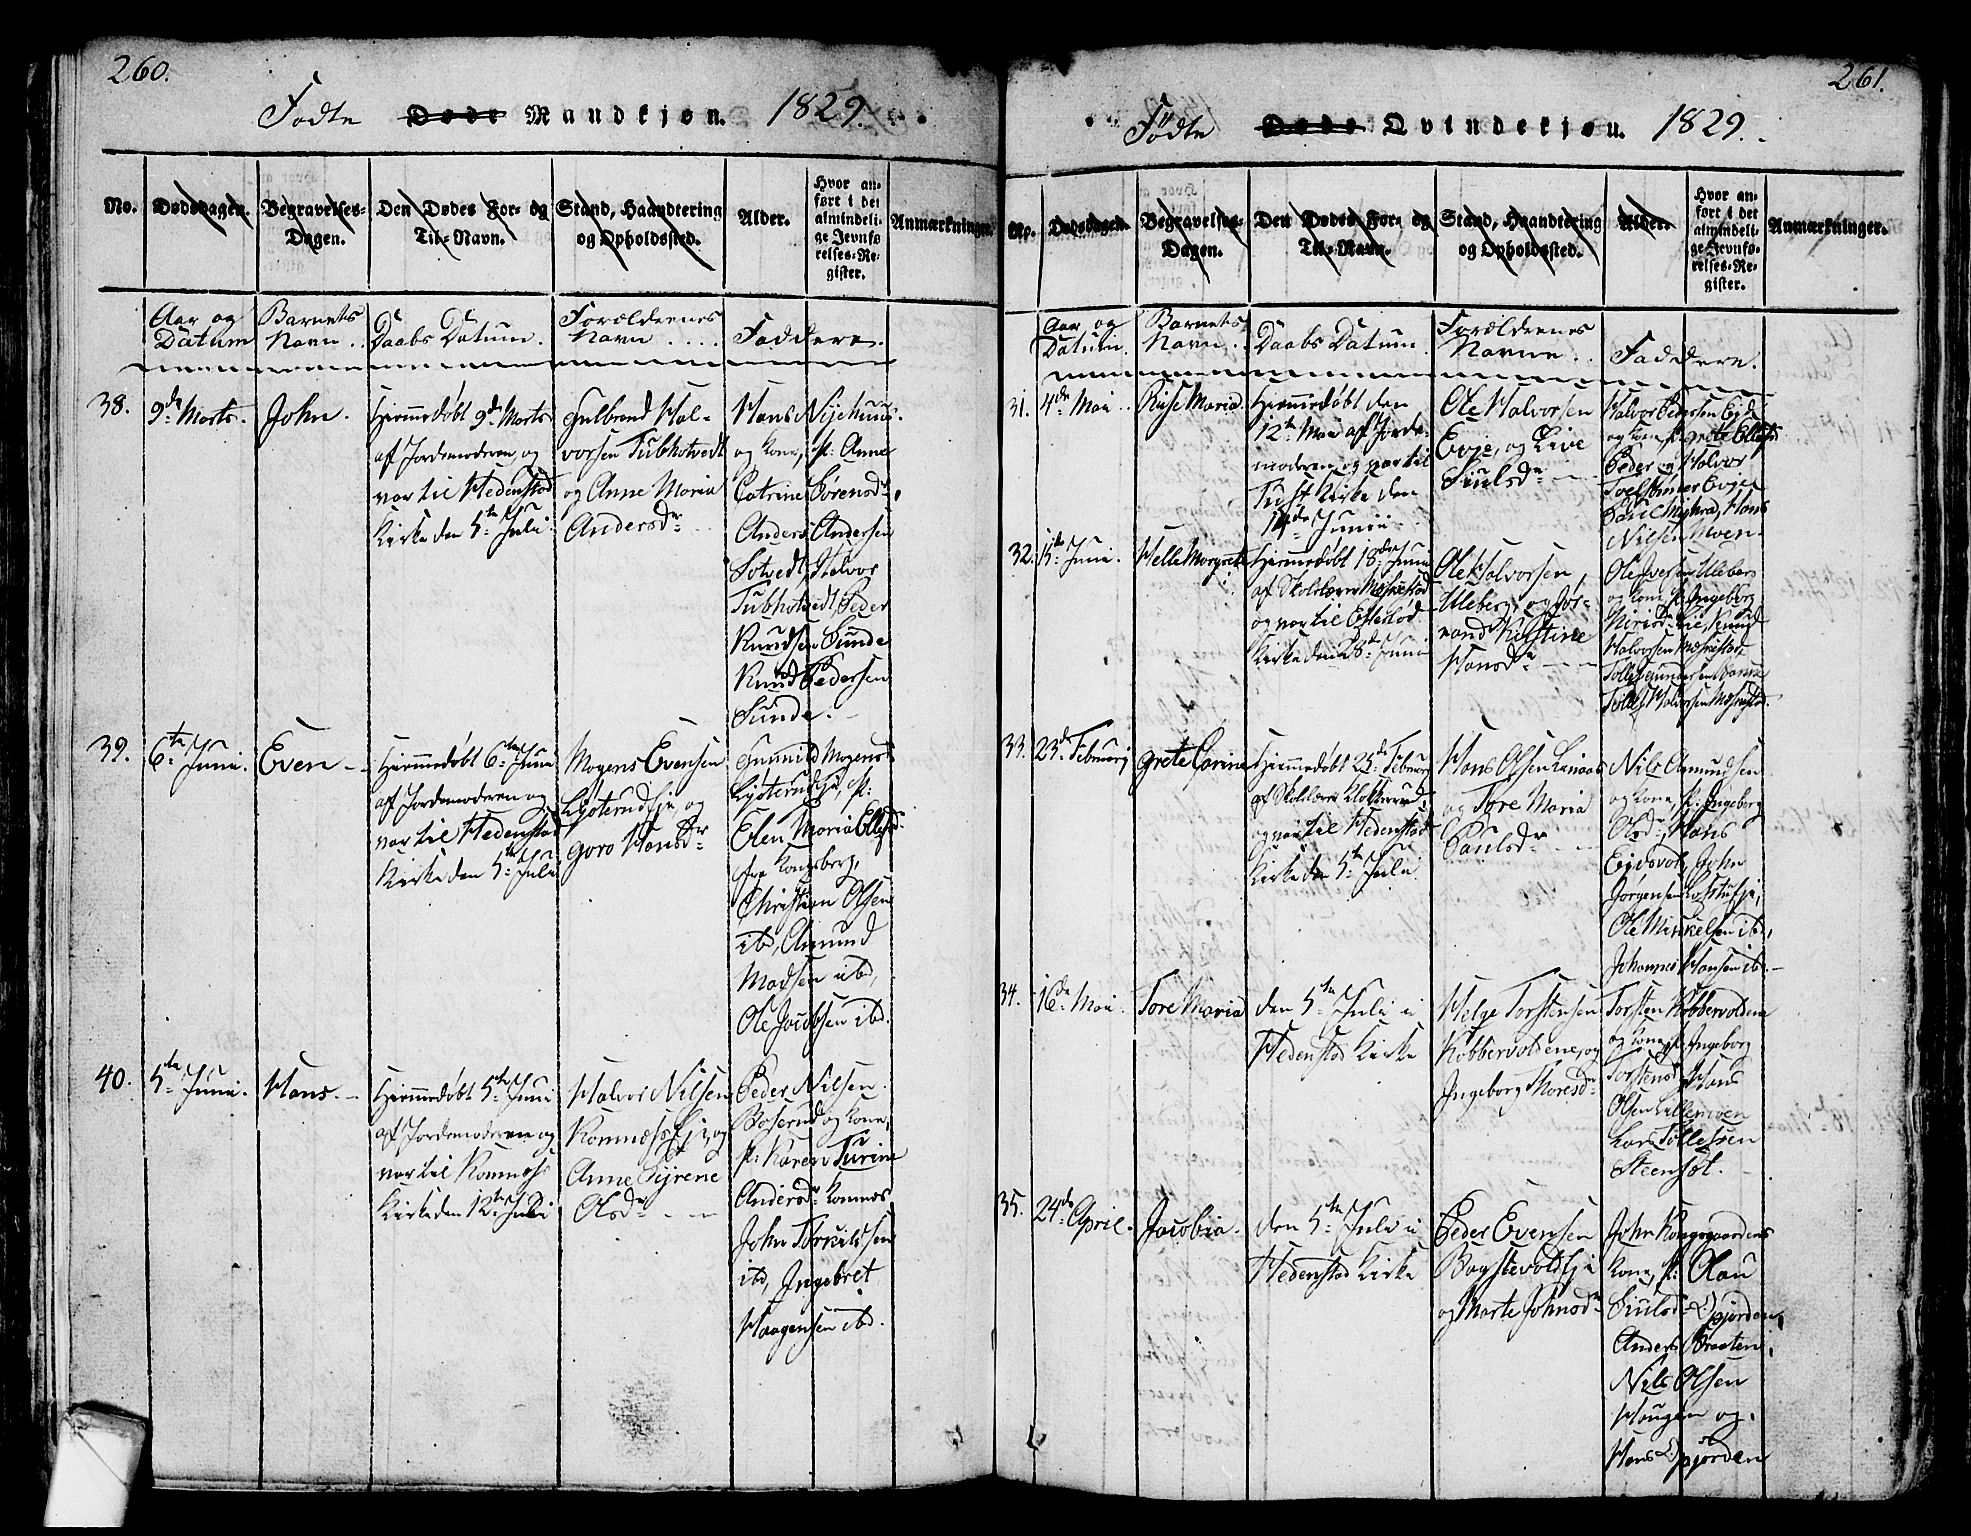 260.
Fødte Døde Mandkjøn. 1829.
No.
Dødsdagen.
Begravelses-
Dagen.
Den Dødes For- og
Til-Navn.
Stand, Haandtering
og Opholdssted.
Alder.
Hvor an-
ført i det
almindeli-
ge Jevnfø-
relses-Re-
gister.
Anmærkninger.
Aar og
Datum
Barnets
Navn ..
Daabs Datum.
Forældrenes
Navn ....
Faddere.
38.
9de Marts.
John.
Hiemmedøbt 9de Marts
af Jordemoderen, og
var til Hedenstad
Kirke den 5te Juli
Gulbrand Hal-
vorsen Tubhotvedt
og Anne Maria
Andersdr
Hans Nijehuus.
og Kone, f: Anne
Catrine Sørensdr,
Anders Andersen
Sotvedt, Halvor
Tubhotvedt, Peder
Knudsen Sunde
Knud Pedersen
Sunde.
39.
6te Juni.
Even
Hiemmedøbt 6te Juni
af Jordemoderen og
var til Hedenstad
Kirke den 5te Juli
Mogens Evensen
Lysterudeje og
Goro Hansdr
Gunnild Mogens
Lysterudeje, f:
Elen Maria Ellefsd
fra Kongsberg,
Christian Olsen
ibd, Amund
Madsen ibd,
Ole Jacobsen ibd.
40.
5te Juni.
Hans.
Hiemmedøbt 5te Juni
af Jordemoderen og
var til Komnæss
Kirke den 12te Juli
Halvor Nilsen
Komnæss Eje, og
Anne Kyrene
Olsdr
Peder Nilsen
Boserud og Kone,
f: Karen Turine
Andersdr Komnæs
John Torkildsen
ibd, Ingebret
Haagensen ibd.
261.
Fødte Døde Qvindekjøn. 1829.
No.
Dødsdagen.
Begravelses-
Dagen.
Den Dødes For- og
Til-Navn.
Stand, Haandtering
og Opholdssted.
Alder.
Hvor an-
ført i det
almindeli-
ge Jevnfø-
relses-Re-
gister.
Anmærkninger.
Aar og
Datum.
Barnets
Navn ..
Daabs Datum
Forældrenes
Navne ..
Faddere.
31.
4de Mai
Hiemmedøbt den
12te Mai af Jorde-
moderen, og var til
Tuft Kirke den
14de Junii
Ole Halvorsen
Evje, og Live
Siulsdr
Halvor Pedersen
og Kone, f: Grete Ellefsd
Peder og Halvor
Evje
Hans
Nilsen Moen.
32.
15te Juni.
Helle Margrete
Hiemmedøbt 18de Juni
af Skolelærer Mæhrestad
og var til Eftelød
Kirke den 28de Juni
Ole Halvorsen
Uleberg, og Jør-
rand Kirstine
Hansdr
Ole Iversen Uleberg
og Kone, f: Ingeborg
Knud
Halvorsen
Tollef Gundersen
Tollef Halvorsen
33.
23de Februarj
Grete Carine
Hiemmedøbt 25de Februarj
af Skolelærer Klokkerud,
og var til Hedenstad
Kirke den 5te Juli.
Hans Olsen Linaas
og Tore Maria
Paulsdr
Nils Amundsen
og Kone, f: Ingeborg
Olsdr, Hans
Eijdsvold, John
Jørgensen
Ole Mikkelsen ibd,
Johannes Hansen ibd.
34.
16de Mai.
Tore Maria
den 5te Juli i
Hedenstad Kirke
Helge Torstensen
Kobbervoldene, og
Ingeborg Thoresdr
Torsten Kobbervoldene
og Kone, f: Ingeborg
Torstensd, Hans
Olsen Lillemoen
Lars Tollefsen
Steenset.
35.
24de April.
Jacobia.
den 5te Juli i
Hedenstad Kirke
Peder Evensen
Bagstevoldeje
og Marte Johnsdr
John Kongsgaardens
Kone, f: Olau
Siulsdr Opjorden,
Anders Braaten,
Nils Olsen
Haugen og,
Hans Opjorden